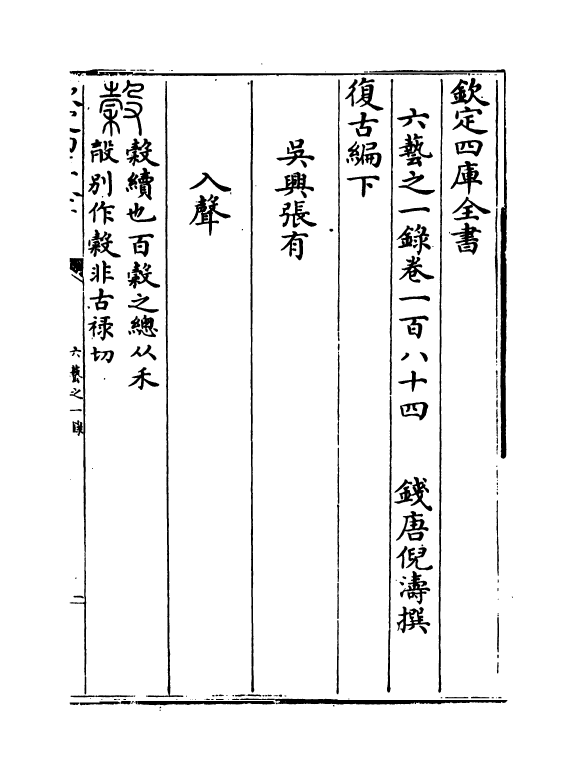 欽定四庫全書
六藝之一錄卷一百八十四 錢唐倪濤撰
復古編下
吳興張有
入聲
穀
穀續也百穀之總从禾
㱿別作榖非古祿切
六藝之一錄